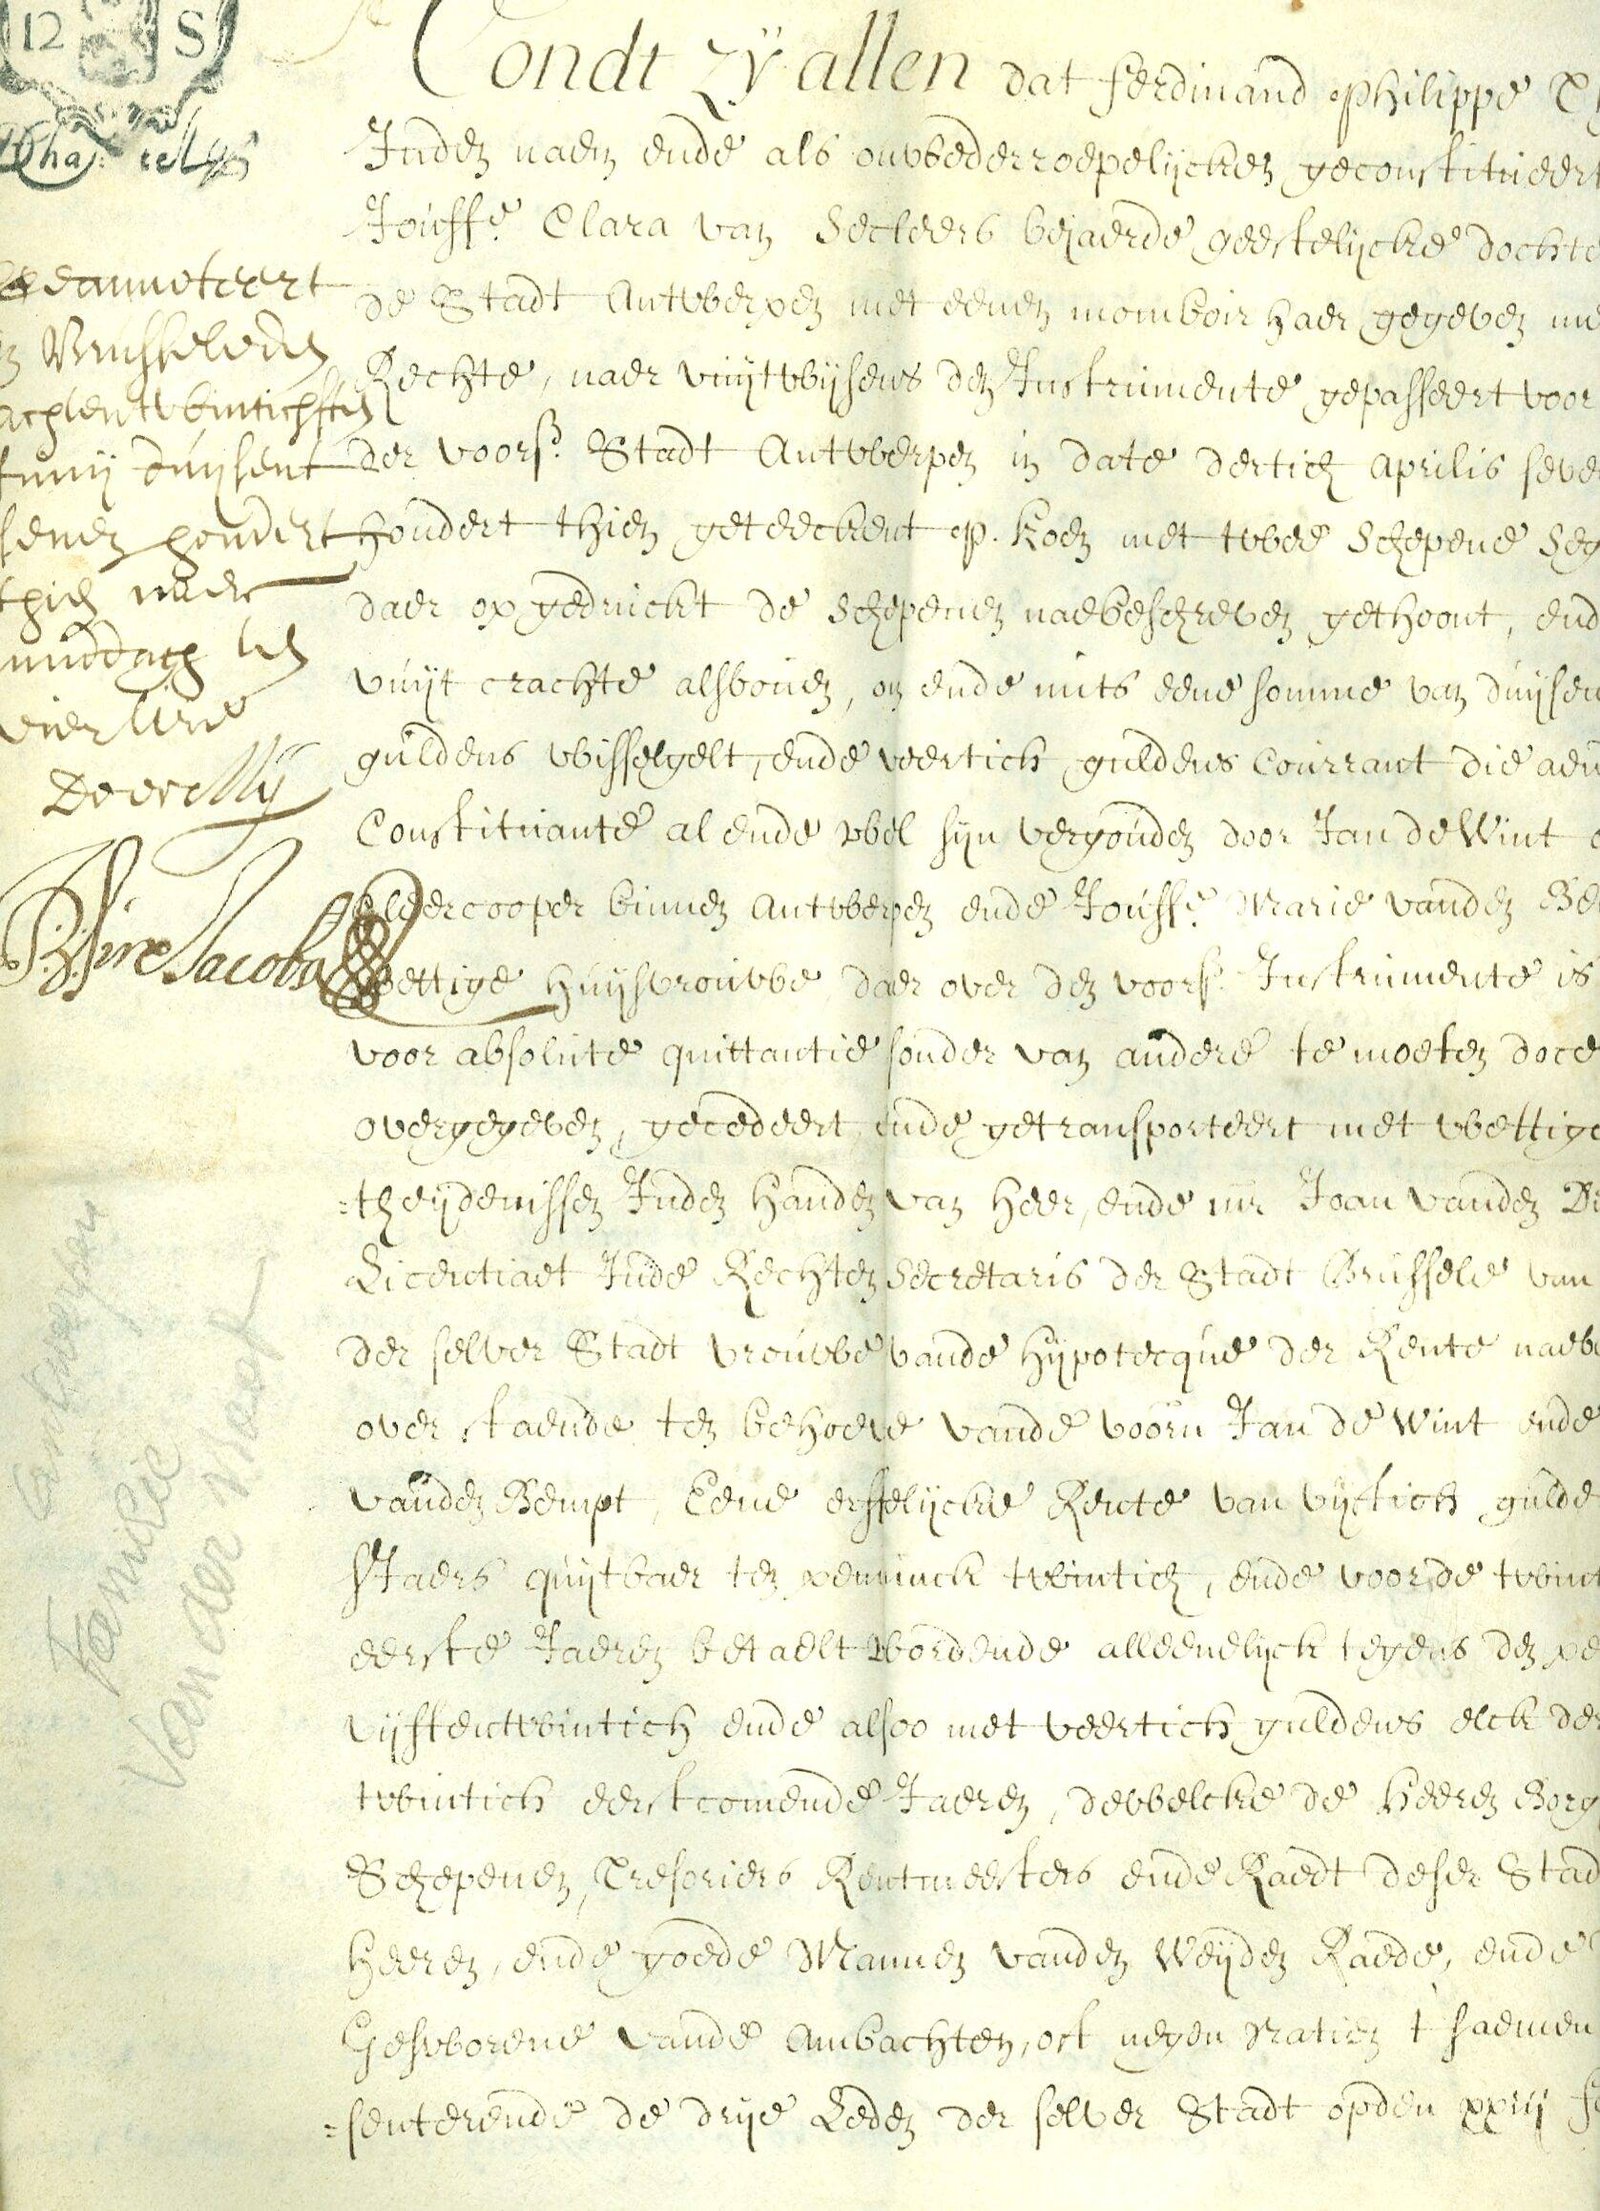 12 S
Condt zÿ allen dat Ferdinand Philippe
Inden naem ende als onwederroepelijcken geconstitueert
Jouffe. Clara van Secleers bejaerde geestelijcke dochte
de Stadt Antwerpen met eenen momboir haer gegeven me
Rechte, naer vuijtwijsens den Instrumente gepasseert voor
der voors. Stadt Antwerpen in date dertich Aprilis seve
hondert thien geteeckent P. Koen met twee Schepene Seg
daer op gedruckt de Schepenen naebeschreven gethoont, end
vuijt crachte alsvoiren, om ende mits eene somme van duijsen
guldens wisselgelt, ende veertich guldens Courrant die aen
Constituante al ende wel sijn vergouden door Jan de Wint
cleercooper binnen Antwerpen ende Jouffe. Marie vanden Be
wettige huijsvrouwe daer over den voors. Instrumente is
voor absolute quittantie sonder van andere te moeten doce
overgegeven, gecedeert, ende getransporteert met wettige
=theijdenissen Inden handen van Heer, ende mr Joan vanden
Licentiaet Inde Rechten Secretaris der Stadt Brussele van
der selver Stadt vrouwe vande hijpotecque der Rente naeb
over staende ten behoeve vande voorn Jan de Wint ende
vanden Bempt, Eene erffelijcke Rente van vijftich gulde
sJaers quijtbaer ten penninck twintich, ende voor de twint
eerste Jaeren betaelt wordende alleenelijck tegens den pe
vijffentwintich ende alsoo met veertich guldens elck der
twintich eerstcomende Jaeren, dewelcke de Heeren Borg
Schepenen, Tresoriers Rentmeesters ende Raedt deser Stad
Heeren, ende goede Mannen vanden Weijden Raede, ende
Gesworene vande Ambachten, oft negen Natien t' saemen
=senterende de drije Leden der selver Stadt opden xxiij
Geannoteert
Brusselen den
achtentwintichsten
Junij duijsent
seven hondert
thien naer
middach ten
vier uren
Jacobs
Familie
Van der Meer